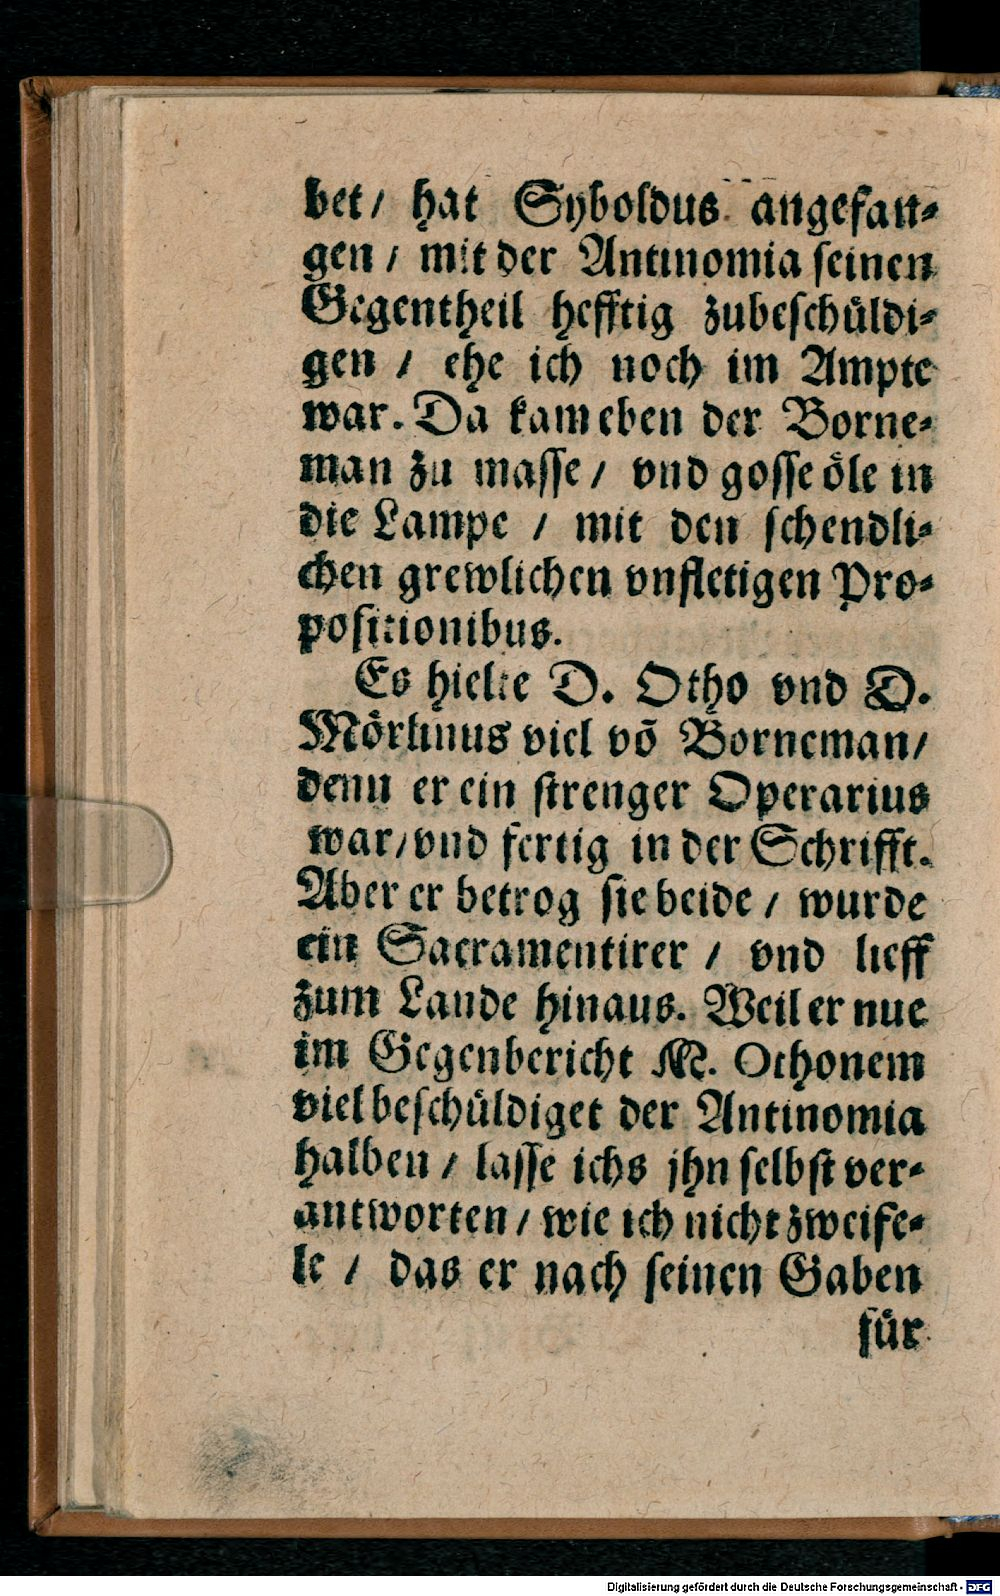 bet / hat Syboldus angefan⸗
gen / mit der Antinomia seinen
Gegentheil hefftig zubeschüldi⸗
gen / ehe ich noch im Ampte
war. Da kam eben der Borne⸗
man zu masse / vnd gosse öle in
die Lampe / mit den schendli⸗
chen grewlichen vnfletigen Pro⸗
positionibus.
Es hielte D. Otho vnd D.
Mörlinus viel võ Borneman /
denn er ein strenger Operarius
war / vnd fertig in der Schrifft.
Aber er betrog sie beide / wurde
ein Sacramentirer / vnd lieff
zum Lande hinaus. Weil er nue
im Gegenbericht M. Othonem
viel beschüldiget der Antinomia
halben / lasse ichs jhn selbst ver⸗
antworten / wie ich nicht zweife⸗
le / das er nach seinen Gaben
für
Digitalisierung gefördert durch die Deutsche Forschungsgemeinschaft - DFG